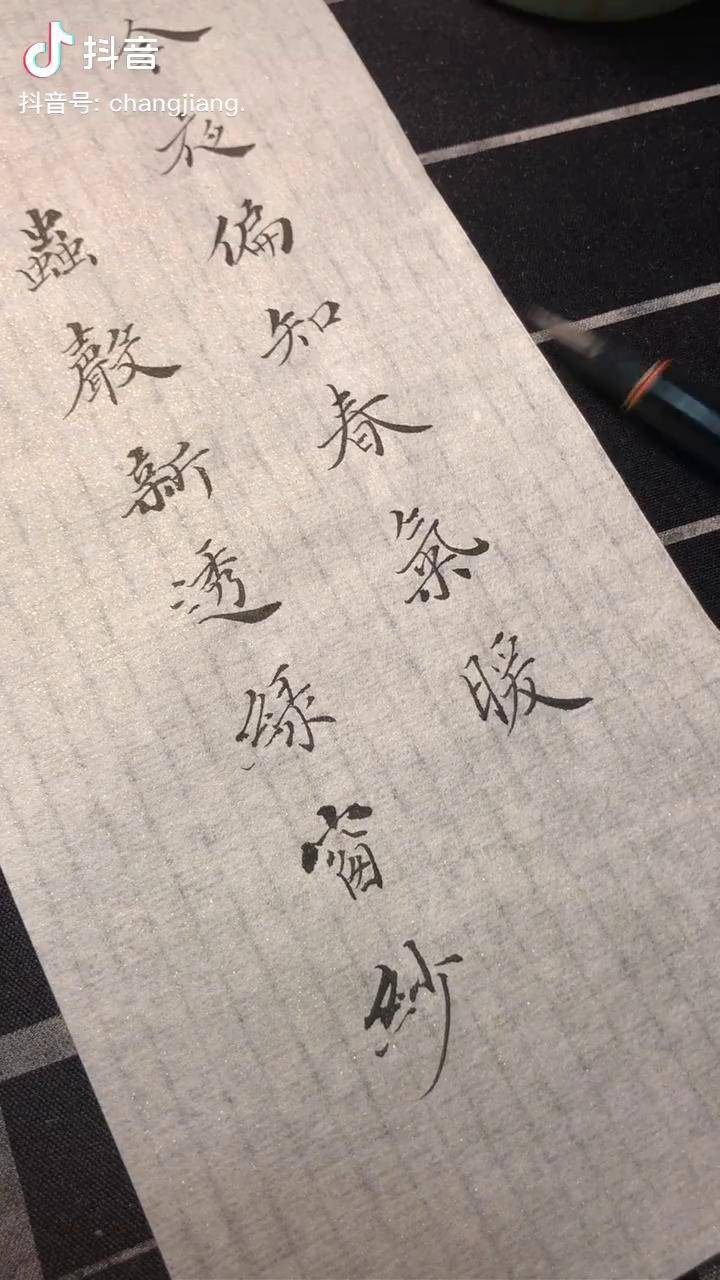 抖音
抖音号: changjiang.
今夜偏知春氣暖
蟲聲新透綠窗紗